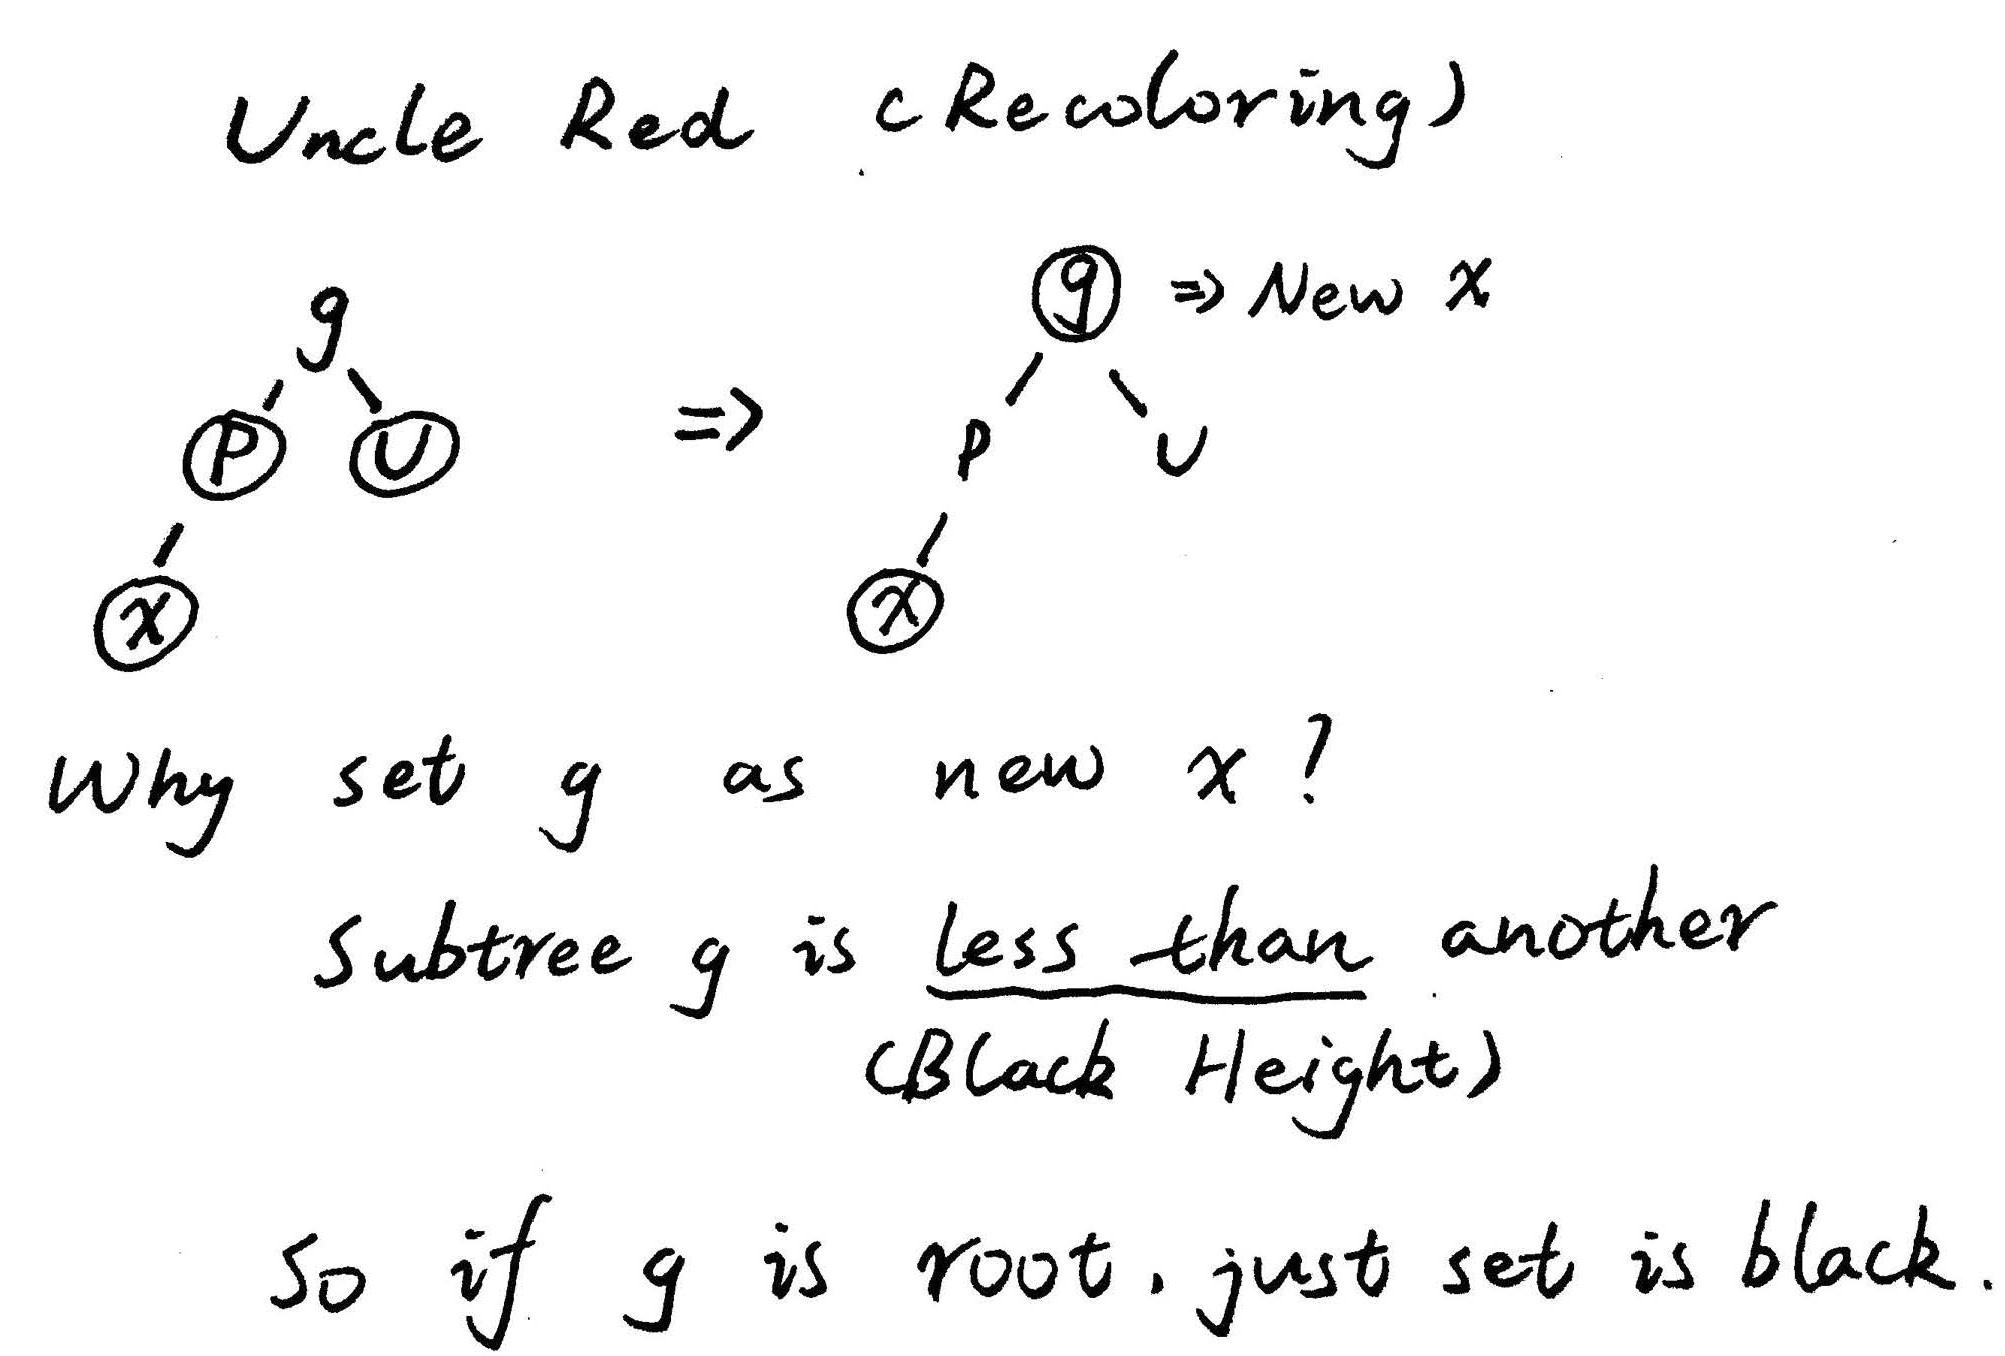 Uncle Red (Recoloring)
g
g => New x
P U
=>
P U
x
x
Why set g as new x?
Subtree g is less than another
(Black Height)
So if g is root, just set is black.